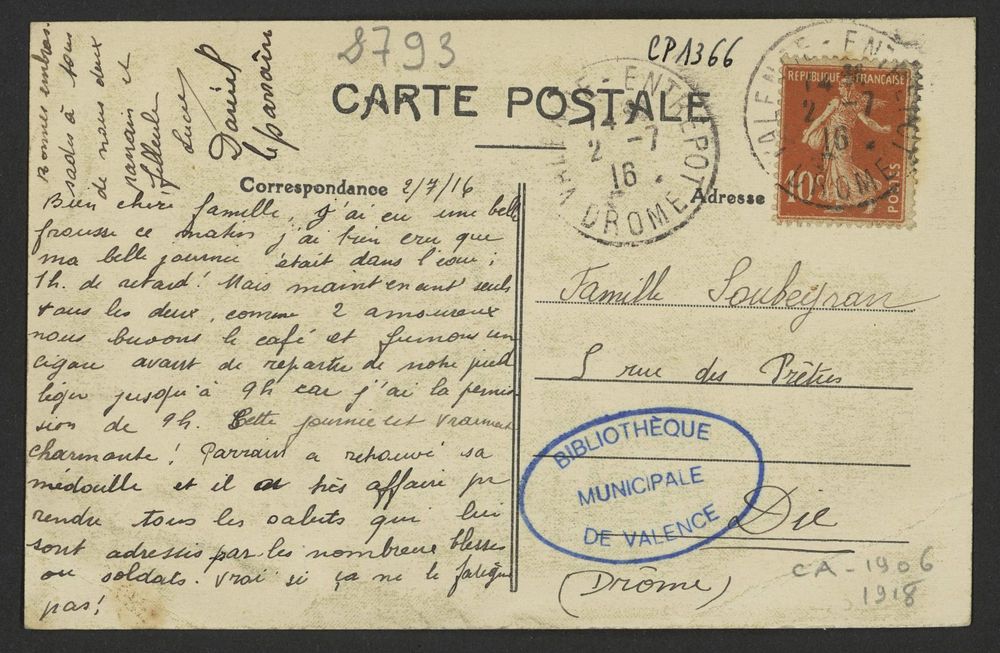 8793
CPA366
CARTE POSTALE
Correspondance 2/7/16
Bien chère famille, j'ai eu une belle
frousse ce matin j'ai bien cru que
ma belle journée était dans l'eau ;
1h. de retard! Mais maintenant seuls
tous les deux, comme 2 amoureux
nous buvons le café et fumons un
cigare avant de repartir de notre pied
léger jusqu'à 9h car j'ai la permis
sion de 9h. Cette journée est vraiment
charmante! Parrain a retrouvé sa
médaille et il est très affairé pr
rendre tous les saluts qui lui
sont adressés par les nombreux blessés
ou soldats. Vrai si ça ne le fatigue
pas!
Bonnes embras-
sades à tous
de nous deux
parrain et
filleule
Lucie
Daniel
le parrain
Adresse
Famille Soubeyran
5 rue des Prêtres
Die
(Drôme)
VALENCE - ENTREPOT
14
2 - 7
16
DROME
VALENCE - ENTREPOT
14
2 - 7
16
DROME
REPUBLIQUE FRANÇAISE
10c
POSTES
BIBLIOTHÈQUE
MUNICIPALE
DE VALENCE
CA - 1906
1918